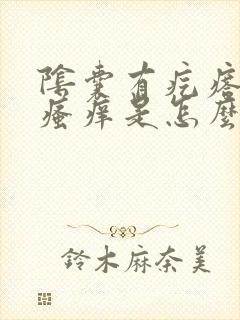 陰囊有疙瘩
瘙痒是怎麼
鈴木麻奈美